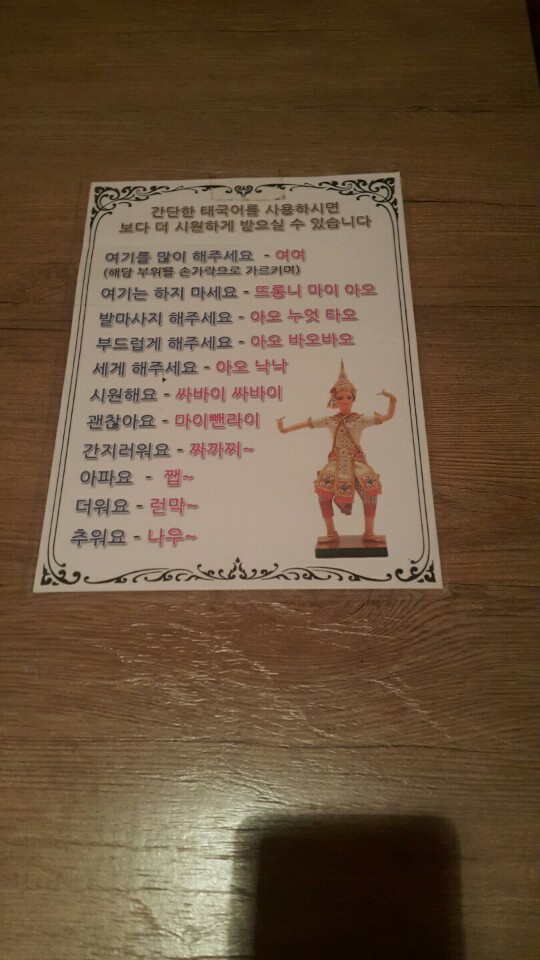 간단한 태국어를 사용하시면
보다 더 시원하게 받으실 수 있습니다
여기를 많이 해주세요 - 여여
(해당 부위를 손가락으로 가르키며)
여기는 하지 마세요 - 뜨롱니 마이 아오
발마사지 해주세요 - 아오 누엇 타오
부드럽게 해주세요 - 아오 바오바오
세게 해주세요 - 아오 낙낙
시원해요 - 싸바이 싸바이
괜찮아요 - 마이뺀라이
간지러워요 - 짜까찌~
아파요 - 쨉~
더워요 - 런막~
추워요 - 나우~